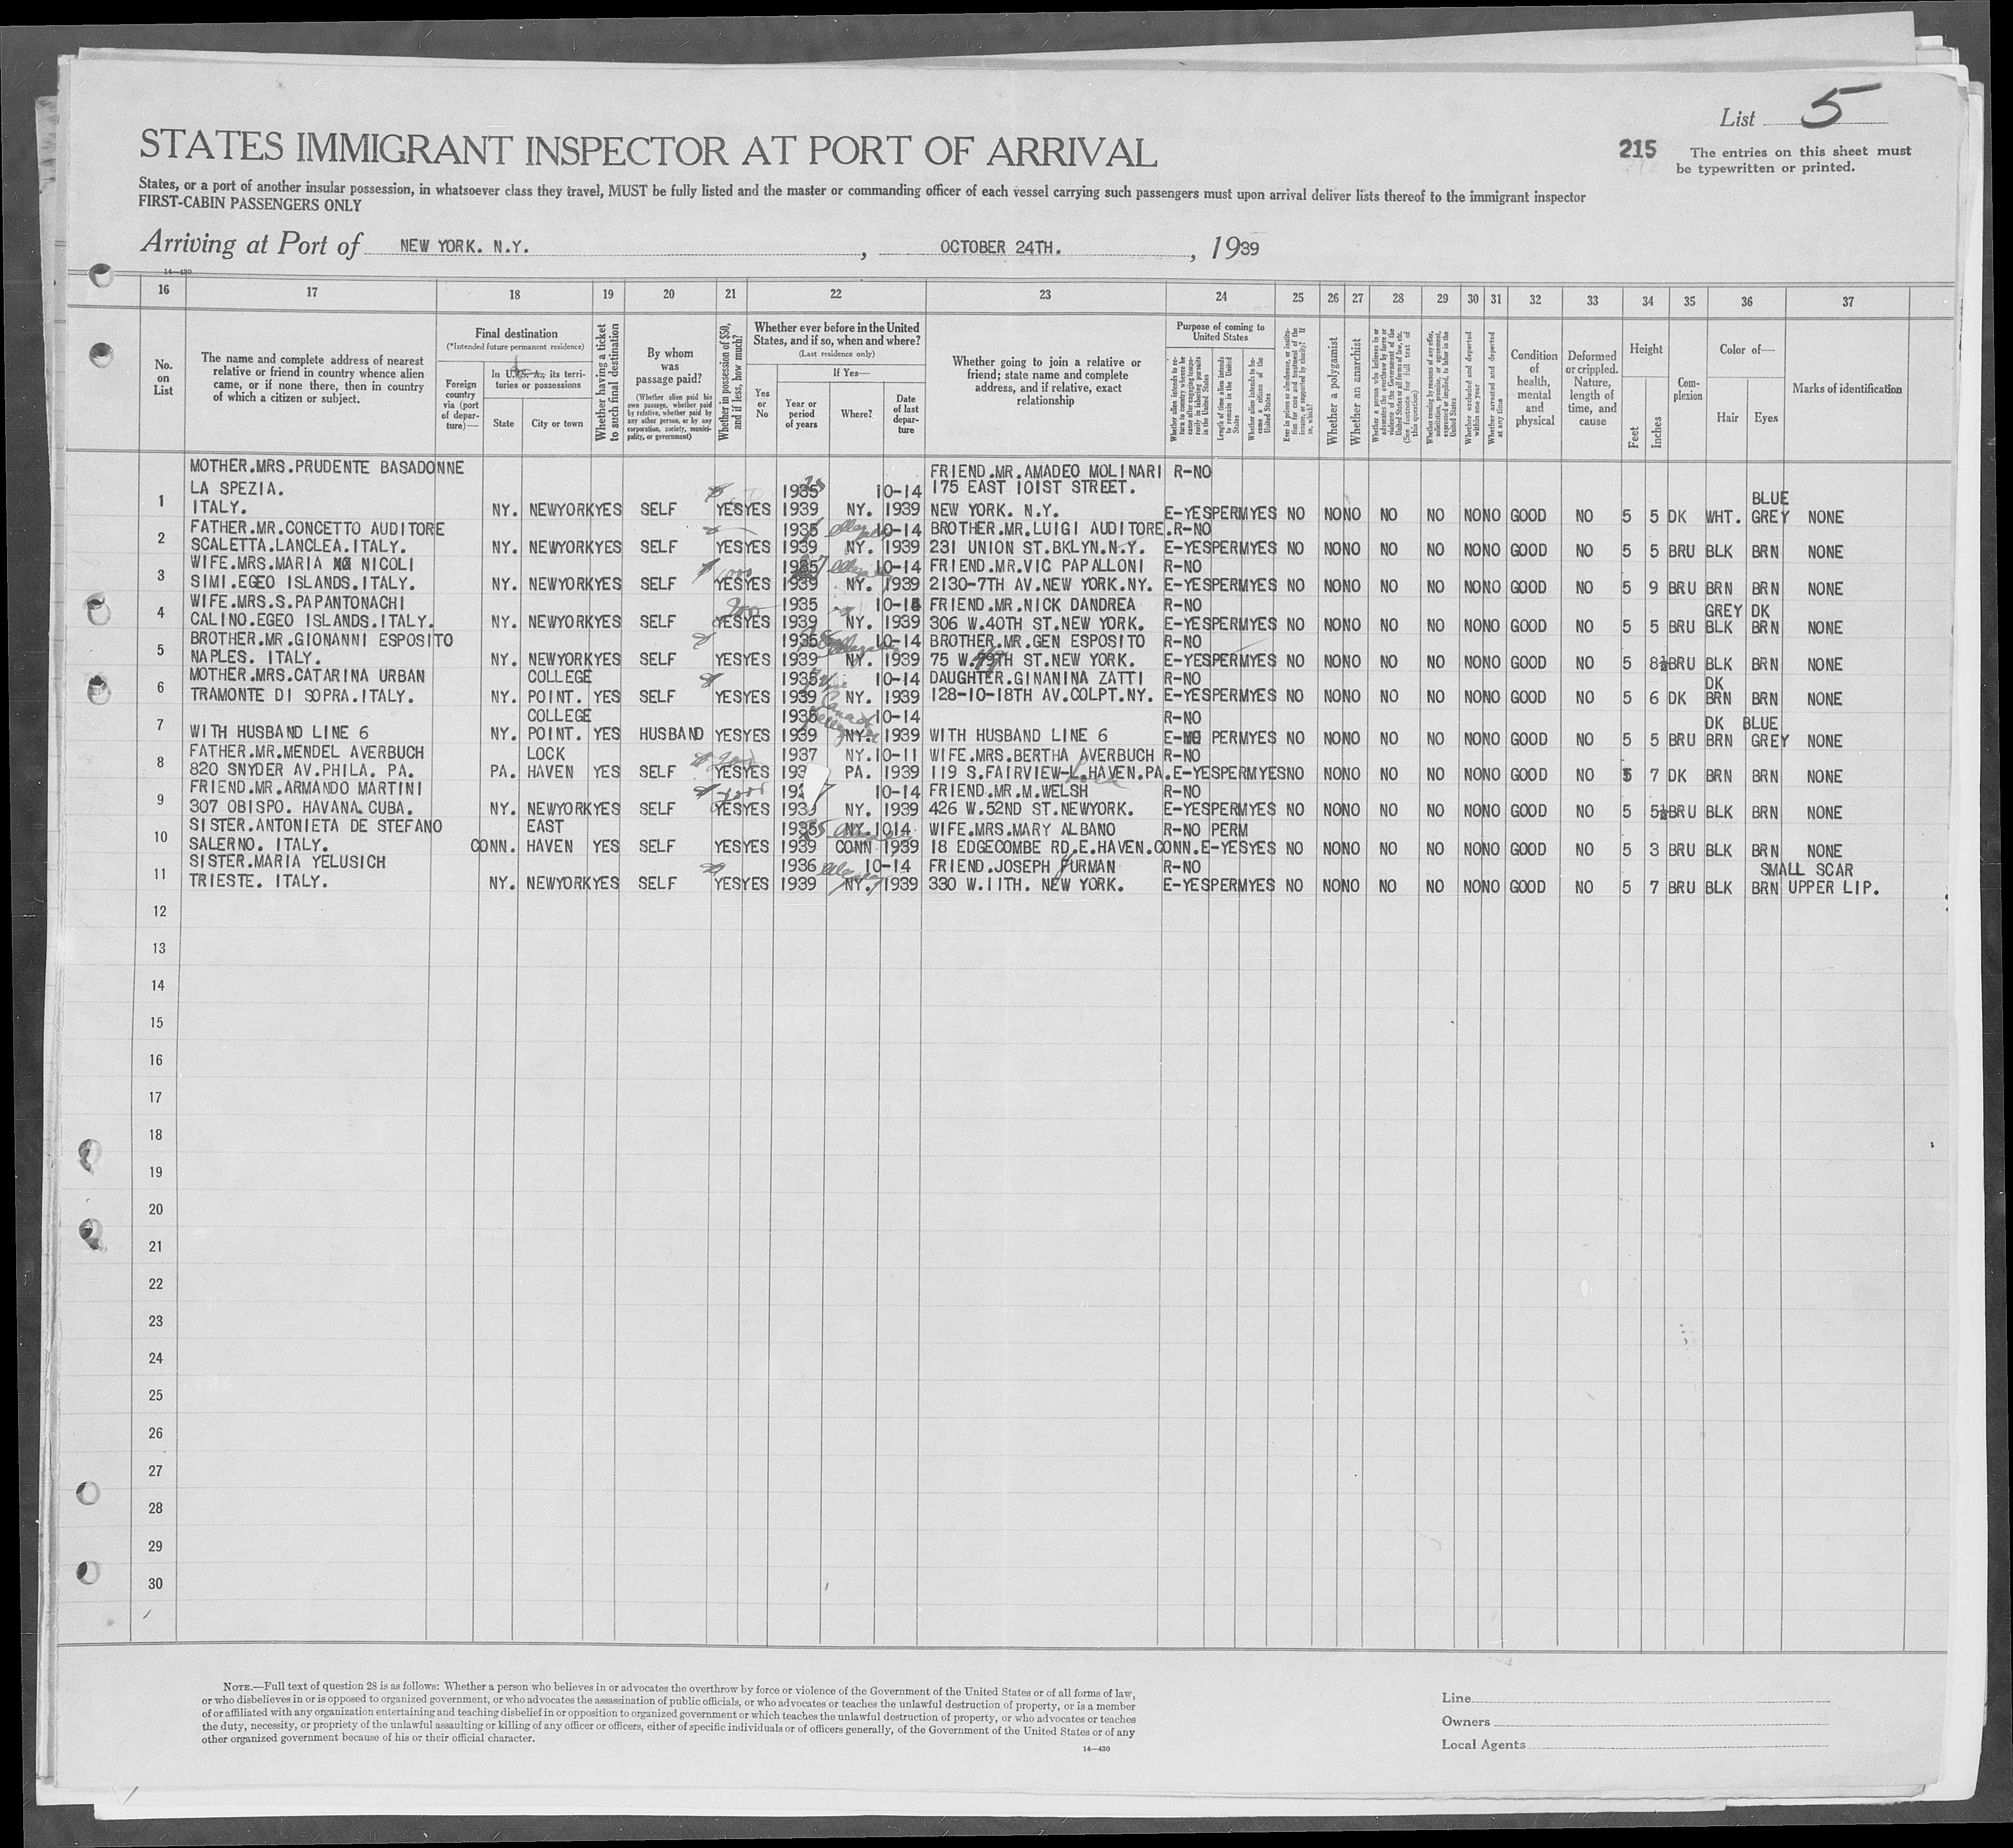 List 5
STATES IMMIGRANT INSPECTOR AT PORT OF ARRIVAL
215
The entries on this sheet must
be typewritten or printed.
States, or a port of another insular possession, in whatsoever class they travel, MUST be fully listed and the master or commanding officer of each vessel carrying such passengers must upon arrival deliver lists thereof to the immigrant inspector
FIRST-CABIN PASSENGERS ONLY
Arriving at Port of NEW YORK. N.Y. , OCTOBER 24TH. , 1939
14—430
16 17 18 19 20 21 22 23 24 25 26 27 28 29 30 31 32 33 34 35 36 37
No. on List
The name and complete address of nearest relative or friend in country whence alien came, or if none there, then in country of which a citizen or subject.
Final destination
(*Intended future permanent residence)
Foreign country via (port of departure)—
In U. S. A., its territories or possessions
State
City or town
Whether having a ticket to such final destination
By whom was passage paid?
(Whether alien paid his own passage, whether paid by relative, whether paid by any other person, or by any corporation, society, municipality, or government)
Whether in possession of $50, and if less, how much?
Whether ever before in the United States, and if so, when and where?
(Last residence only)
Yes or No
If Yes—
Year or period of years
Where?
Date of last departure
Whether going to join a relative or friend; state name and complete address, and if relative, exact relationship
Purpose of coming to United States
Whether alien intends to return to country whence he came after engaging temporarily in laboring pursuits in the United States
Length of time alien intends to remain in the United States
Whether alien intends to become a citizen of the United States
Ever in prison or almshouse, or institution for care and treatment of the insane, or supported by charity? If so, which?
Whether a polygamist
Whether an anarchist
Whether a person who believes in or advocates the overthrow by force or violence of the Government of the United States or all forms of law, etc. (See footnote for full text of this question)
Whether coming by reasons of any offer, solicitation, promise, or agreement, expressed or implied, to labor in the United States
Whether excluded and deported within one year
Whether arrested and deported at any time
Condition of health, mental and physical
Deformed or crippled. Nature, length of time, and cause
Height
Feet
Inches
Complexion
Color of—
Hair
Eyes
Marks of identification
MOTHER.MRS.PRUDENTE BASADONNE FRIEND.MR.AMADEO MOLINARI R-NO
LA SPEZIA. 1935 10-14 175 EAST 101ST STREET. BLUE
1 ITALY. NY. NEWYORK YES SELF YES YES 1939 NY. 1939 NEW YORK. N.Y. E-YES PERM YES NO NO NO NO NO NO NO GOOD NO 5 5 DK WHT. GREY NONE
FATHER.MR.CONCETTO AUDITORE 1935 10-14 BROTHER.MR.LUIGI AUDITORE. R-NO
2 SCALETTA.LANCLEA.ITALY. NY. NEWYORK YES SELF YES YES 1939 NY. 1939 231 UNION ST.BKLYN.N.Y. E-YES PERM YES NO NO NO NO NO NO NO GOOD NO 5 5 BRU BLK BRN NONE
WIFE.MRS.MARIA NICOLI 10-14 FRIEND.MR.VIC PAPALLONI R-NO
3 SIMI.EGEO ISLANDS.ITALY. NY. NEWYORK YES SELF 1000 YES YES 1939 NY. 1939 2130-7TH AV.NEW YORK.NY. E-YES PERM YES NO NO NO NO NO NO NO GOOD NO 5 9 BRU BRN BRN NONE
WIFE.MRS.S.PAPANTONACHI 1935 FRIEND.MR.NICK DANDREA R-NO GREY DK
4 CALINO.EGEO ISLANDS.ITALY. NY. NEWYORK YES SELF YES YES 1939 NY. 1939 306 W.40TH ST.NEW YORK. E-YES PERM YES NO NO NO NO NO NO NO GOOD NO 5 5 BRU BLK BRN NONE
BROTHER.MR.GIONANNI ESPOSITO 10-14 BROTHER.MR.GEN ESPOSITO R-NO
5 NAPLES. ITALY. NY. NEWYORK YES SELF YES YES 1939 NY. 1939 75 W. ST.NEW YORK. E-YES PERM YES NO NO NO NO NO NO NO GOOD NO 5 8½ BRU BLK BRN NONE
MOTHER.MRS.CATARINA URBAN COLLEGE 1935 10-14 DAUGHTER.GINANINA ZATTI R-NO DK
6 TRAMONTE DI SOPRA.ITALY. NY. POINT. YES SELF YES YES 1939 NY. 1939 128-10-18TH AV.COLPT.NY. E-YES PERM YES NO NO NO NO NO NO NO GOOD NO 5 6 DK BRN BRN NONE
COLLEGE 1935 10-14 R-NO DK BLUE
7 WITH HUSBAND LINE 6 NY. POINT. YES HUSBAND YES YES 1939 NY. 1939 WITH HUSBAND LINE 6 E-NO PERM YES NO NO NO NO NO NO NO GOOD NO 5 5 BRU BRN GREY NONE
FATHER.MR.MENDEL AVERBUCH LOCK 1937 NY. 10-11 WIFE.MRS.BERTHA AVERBUCH R-NO
8 820 SNYDER AV.PHILA. PA. PA. HAVEN YES SELF YES YES PA. 1939 119 S.FAIRVIEW-L.HAVEN.PA. E-YES PERM YES NO NO NO NO NO NO NO GOOD NO 5 7 DK BRN BRN NONE
FRIEND.MR.ARMANDO MARTINI 10-14 FRIEND.MR.M.WELSH R-NO
9 307 OBISPO. HAVANA.CUBA. NY. NEWYORK YES SELF YES YES 1939 NY. 1939 426 W.52ND ST.NEWYORK. E-YES PERM YES NO NO NO NO NO NO NO GOOD NO 5 5½ BRU BLK BRN NONE
SISTER.ANTONIETA DE STEFANO EAST 1935 NY. 1014 WIFE.MRS.MARY ALBANO R-NO PERM
10 SALERNO. ITALY. CONN. HAVEN YES SELF YES YES 1939 CONN 1939 18 EDGECOMBE RD.E.HAVEN.CONN. E-YES YES NO NO NO NO NO NO NO GOOD NO 5 3 BRU BLK BRN NONE
SISTER.MARIA YELUSICH 1936 10-14 FRIEND.JOSEPH FURMAN R-NO SMALL SCAR
11 TRIESTE. ITALY. NY. NEWYORK YES SELF YES YES 1939 NY. 1939 330 W.11TH. NEW YORK. E-YES PERM YES NO NO NO NO NO NO NO GOOD NO 5 7 BRU BLK BRN UPPER LIP.
12
13
14
15
16
17
18
19
20
21
22
23
24
25
26
27
28
29
30
NOTE.—Full text of question 28 is as follows: Whether a person who believes in or advocates the overthrow by force or violence of the Government of the United States or of all forms of law,
or who disbelieves in or is opposed to organized government, or who advocates the assassination of public officials, or who advocates or teaches the unlawful destruction of property, or is a member
of or affiliated with any organization entertaining and teaching disbelief in or opposition to organized government or which teaches the unlawful destruction of property, or who advocates or teaches
the duty, necessity, or propriety of the unlawful assaulting or killing of any officer or officers, either of specific individuals or of officers generally, of the Government of the United States or of any
other organized government because of his or their official character.
14—430
Line
Owners
Local Agents